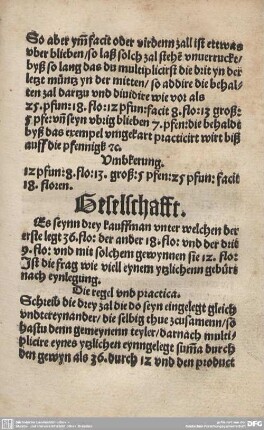 So aber ym̃ facit oder virdenn zall ist ettwas
vber blieben/so laß solch zal stehẽ vnuerruckt/
byß so lang das du multiplicirst die drit yn der
letzt müntz yn der mitten/ so addire die behal-
ten zal dartzu vnd diuidire wie vor als
25.pfun:18.flo:12 pfun:facit 8.flo:13 groß:
5 pfe:vnd̃ seyn vbrig blieben 7.pfen:die behaldt
byß das exempel vmgekart practicirt wirt biß
auff die pfennigk ꝛc.
Vmbkerung.
12 pfun:8.flo:13.groß:5 pfen:25 pfun:facit
18.floren.
Geselschafft.
Es seynn drey kauffman vnter welchen der
erste legt 36.flo: der ander 18.flo: vnd der drit
9.flo: vnd mit solchem gewynnen sie 12.flo:
Ist die frag wie viell eynem ytzlichenn gebürt
nach eynlegung.
Die regel vnd practica.
Schreib die drey zal die do seyn eingelegt gleich
vndtereynander/ die selbig thue zusamenn/so
hastu denn gemeynenn teyler/darnach multi-
plicire eynes ytzlichen eynngelegte sum̃a durch
den gewyn als 36.durch 12 vnd den product